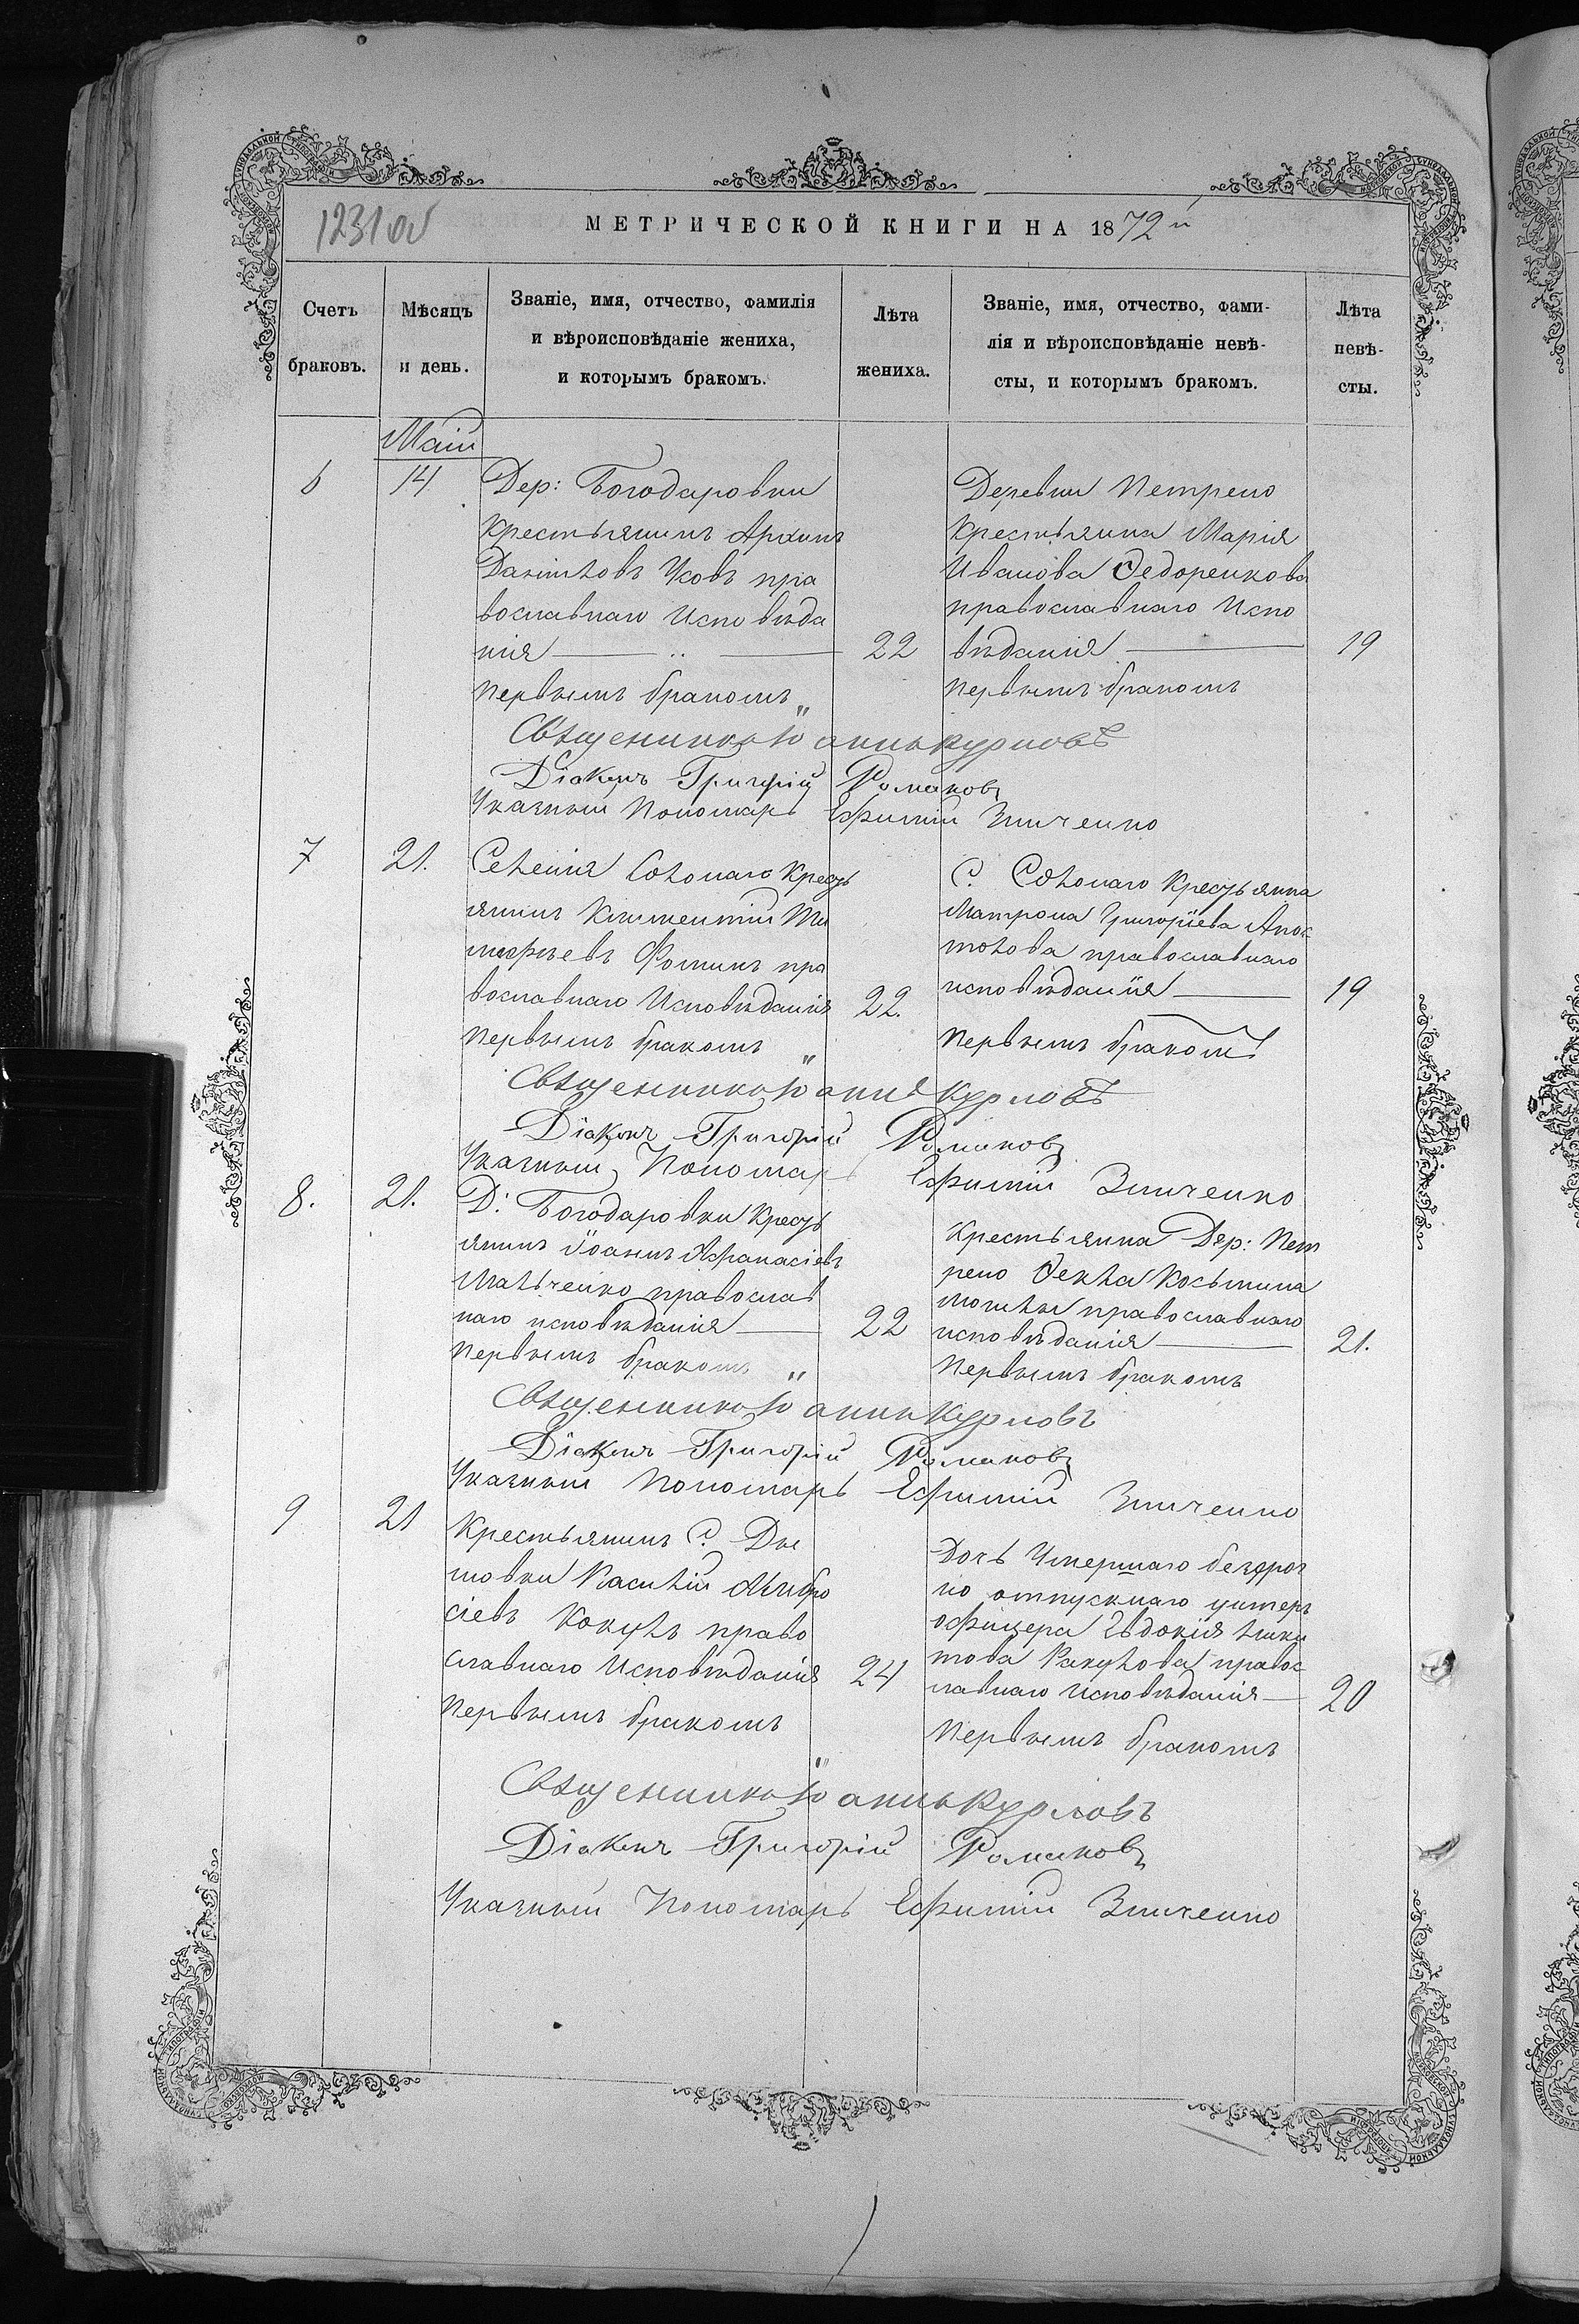 1231 об
МЕТРИЧЕСКОЙ КНИГИ НА 1872 й
Счетъ браковъ.
Мѣсяцъ и день.
Званіе, имя, отчество, фамилія
и вѣроисповѣданіе жениха,
и которымъ бракомъ.
Лѣта жениха.
Званіе, имя, отчество, фами-
лія и вѣроисповѣданіе невѣ-
сты, и которымъ бракомъ.
Лѣта невѣ-
сты.
Маій
6
14
Дер: Богодаровки
крестьянинъ Архипъ
Даніиловъ Усовъ пра
вославнаго Исповѣда
нія
22
первымъ бракомъ
Деревни Петрено
крестьянка Марія
Иванова Ѳедоренкова
православнаго Испо
вѣданія
19
первымъ бракомъ
Священникъ Іоаннъ Курловъ
Діаконъ Григорій Романовъ
Указный Пономарь Ефимій Зинченко
7
21.
Селенія Солонаго Кресть
янинъ Климентій Ти
мофѣевъ Фоминъ пра
вославнаго Исповѣданія
22.
первымъ бракомъ
С. Солонаго Крестьянка
Матрона Григоріева Апос
толова православнаго
исповѣданія
19
первымъ бракомъ
Священникъ Іоаннъ Курловъ
Діаконъ Григорій Романовъ
Указный Пономарь Ефимій Зинченко
8.
21.
Д: Богодаровки Кресть
янинъ Іоаннъ Афанасіевъ
Мальченко православ
наго исповѣданія
22
первымъ бракомъ
Крестьянка Дер: Пет
рено Ѳекла Косьмина
православнаго
исповѣданія
21.
первымъ бракомъ
Священникъ Іоаннъ Курловъ
Діаконъ Григорій Романовъ
Указный Пономарь Ефимій Зинченко
9
21
Крестьянинъ С. Ды
мовки Василій Амбро
сіевъ Кокуль право
славнаго Исповѣданія
24
первымъ бракомъ
Дочь Умершаго безсроч
но отпускнаго унтеръ
офицера Евдокія Ники
това Ракулова правос
лавнаго исповѣданія
20
первымъ бракомъ
Священникъ Іоаннъ Курловъ
Діаконъ Григорій Романовъ
Указный Пономарь Ефимій Зинченко